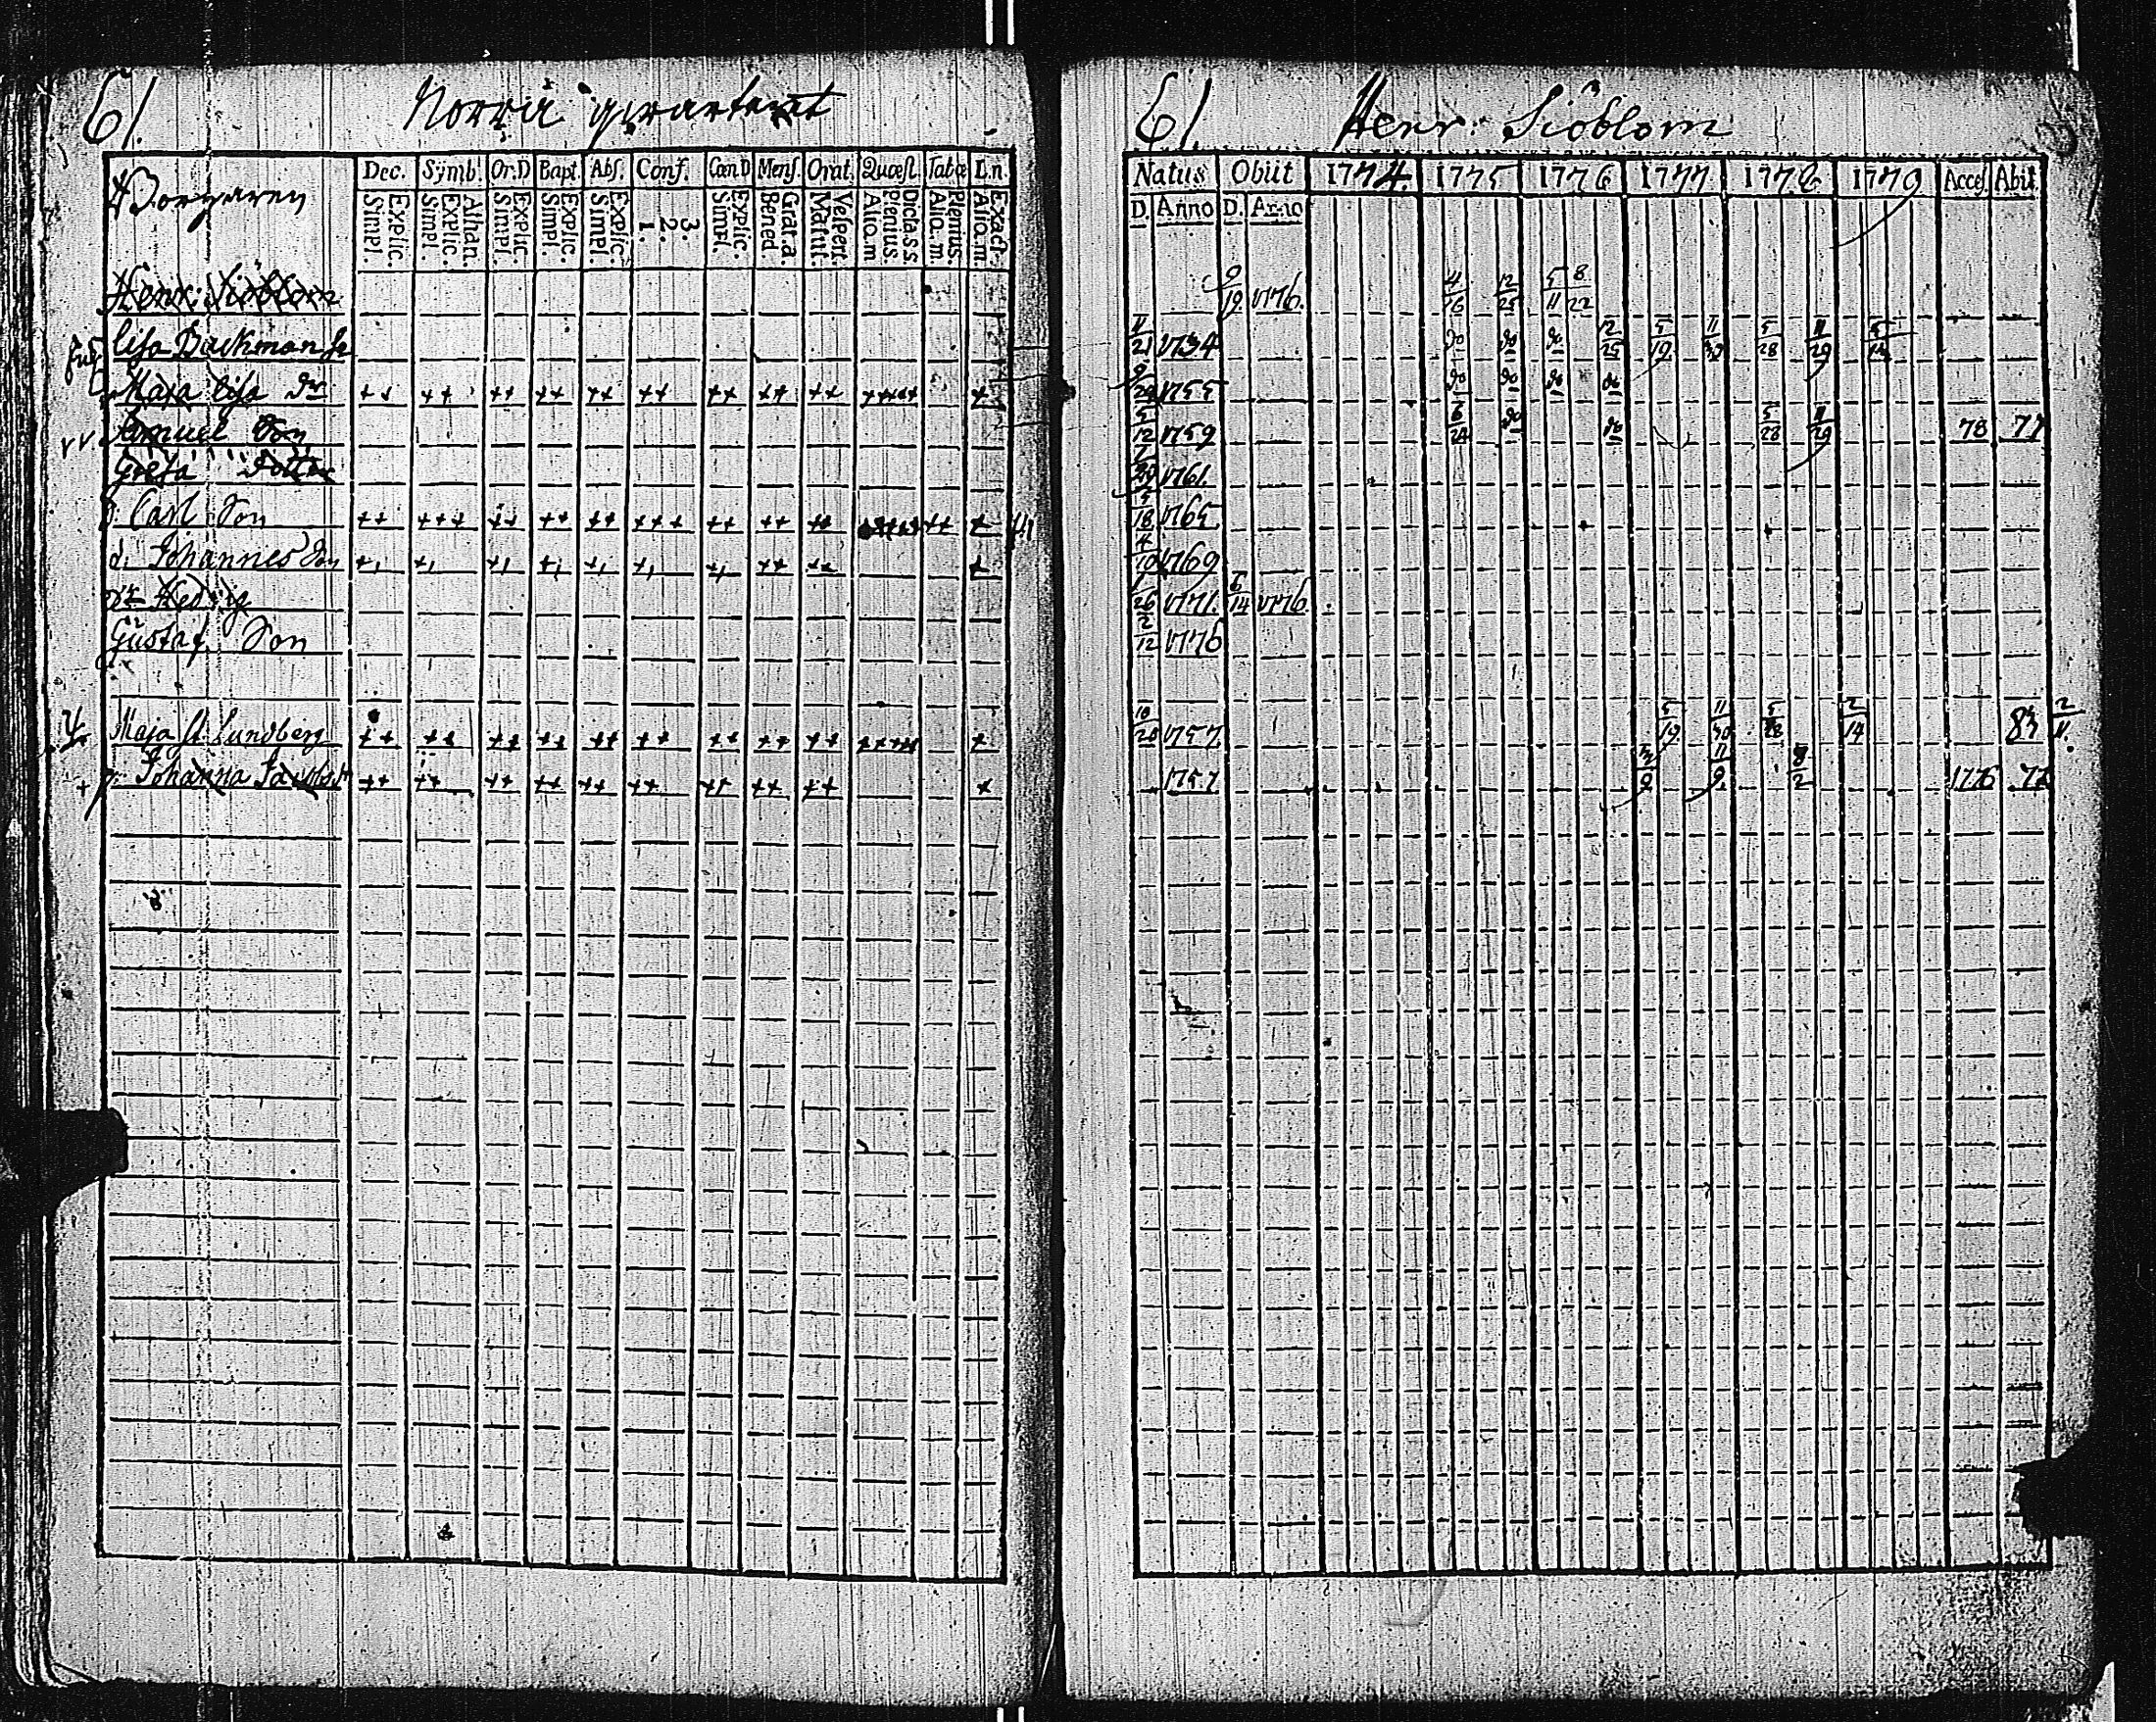 61.
Norra qvarteret
Dec. Symb. Or.D Bapt. Abs. Conf. Cœn D Mens. Orat. Quæst. Tabœ L.n.
Borgaren
Explic. Simpl. Athan. Explic. Simpl. Explic. Simpl. Explic. Simpl. Explic. Simpl. 3. 2. 1. Explic. Simpl. Grat.a. Bened. Vespert. Matut. Dicta.s.s. Plenius Aliq.m Plenius Aliq.m. Exact. Aliq.m.
Henr: Siöblom
Lisa Backman
Maja Lisa dr ++ ++ ++ ++ ++ ++ ++ ++ ++ +
Samuel Son
Greta Dotter
Carl Son ++ +++ ++ ++ ++ +++ ++ ++ ++ ++ +
Johannes Son
Hedvig
Gustaf Son
Maja St. Lundberg ++ ++ ++ ++ ++ ++ ++ ++ ++ ++++ +
Johanna ++ ++ ++ ++ ++ ++ ++ ++ ++ +
61
Henr: Siöblom
Natus Obiit 1774. 1775 1776 1777 1778 1779 Acces. Abit.
D. Anno D. Anno
9/19 1776. 4/16 12/25 5/11 8/22
11/21 1734 do do do 12/25 5/19 11/30 5/28 11/29
1755 do do do do
5/12 1759 6/24 do do 5/28 11/29 78 77
1761.
5/18 1765
1769
1/26 1771. 6/14 1776.
2/12 1776
10/28 1757 5/19 11/30 5/28 2/14 83 2/11.
1757 11/9 8/2 1776 77